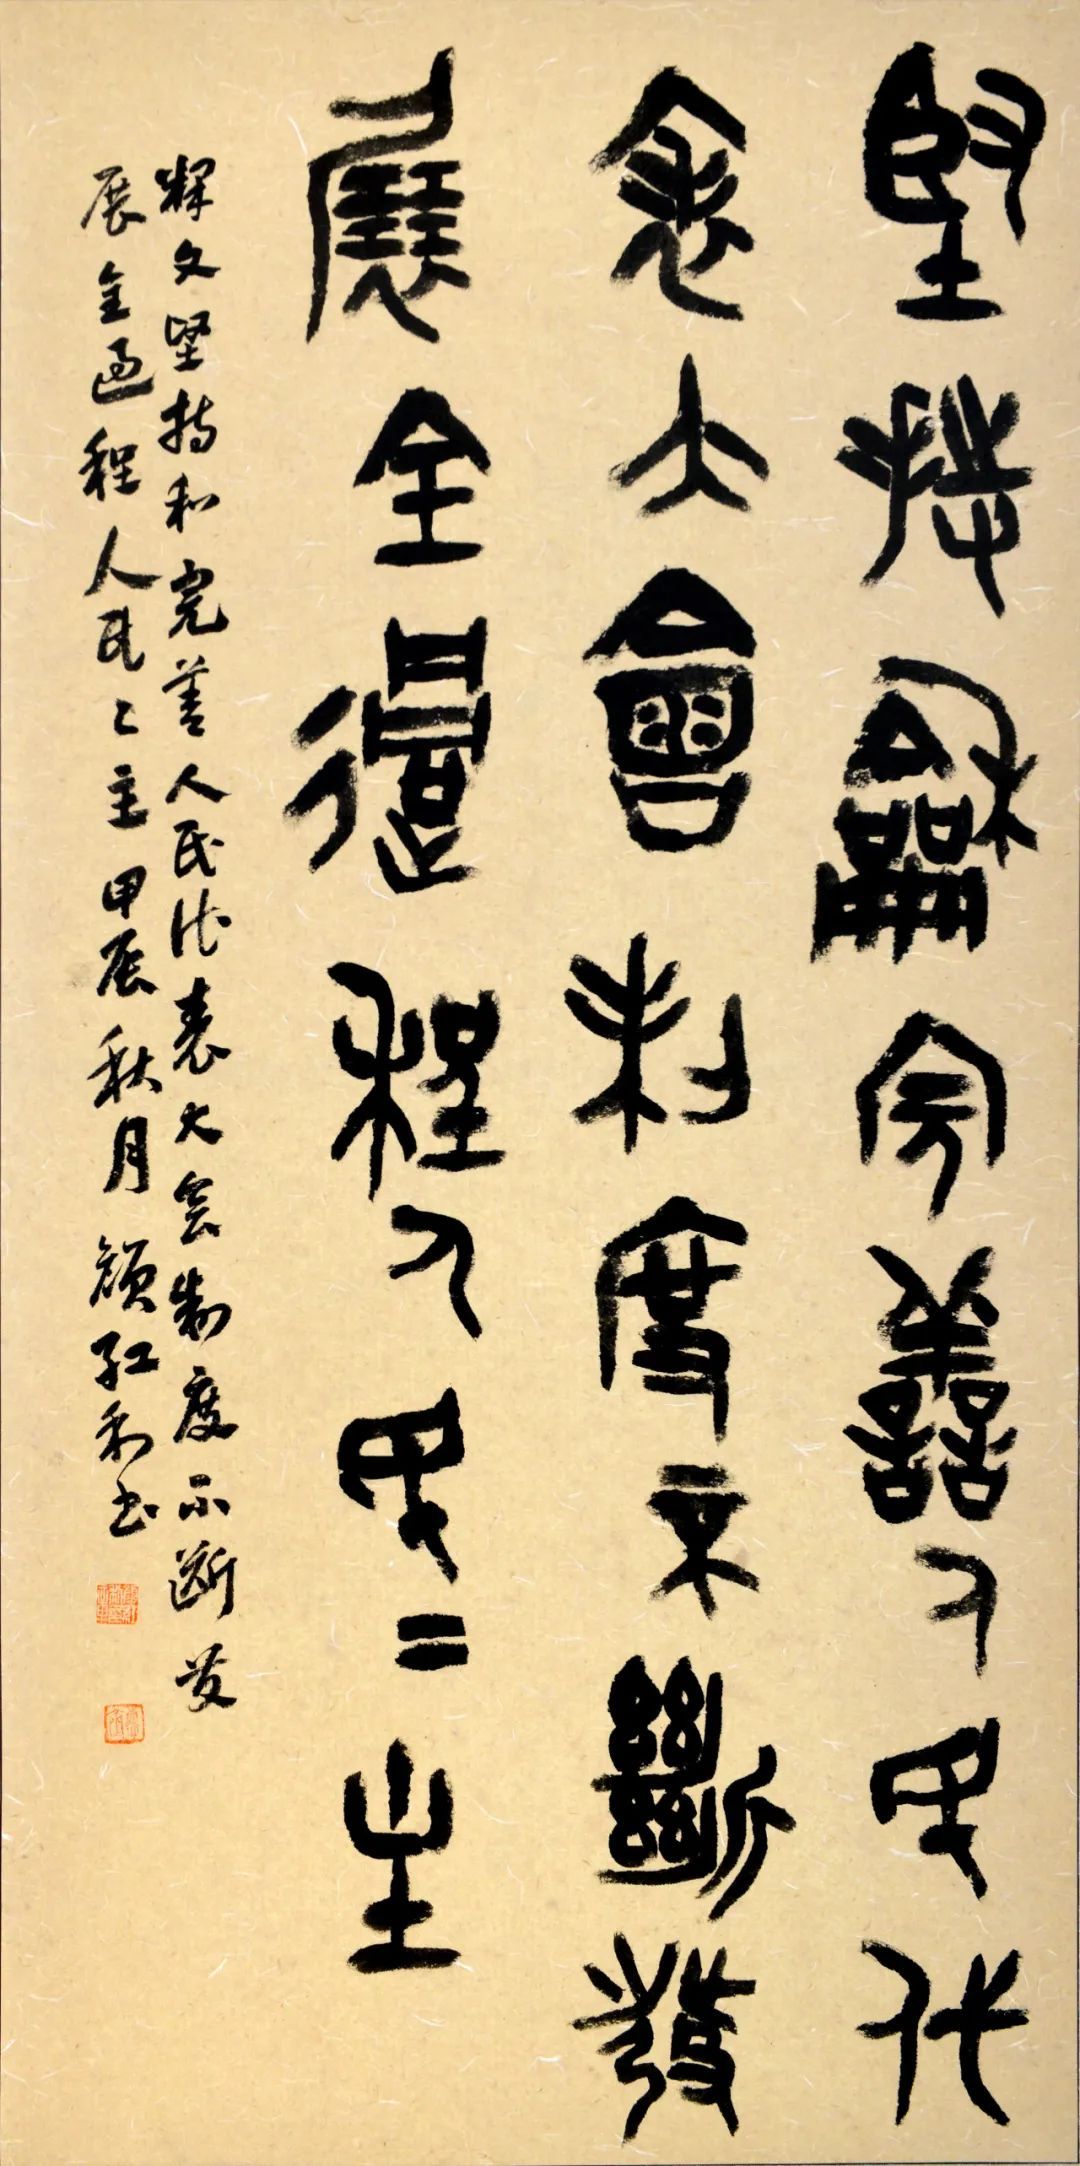 堅持龢完善人民代
表大會制度不斷發
展全過程人民=主
释文坚持和完善人民代表大会制度不断发
展全过程人民〻主甲辰秋月顾红利书